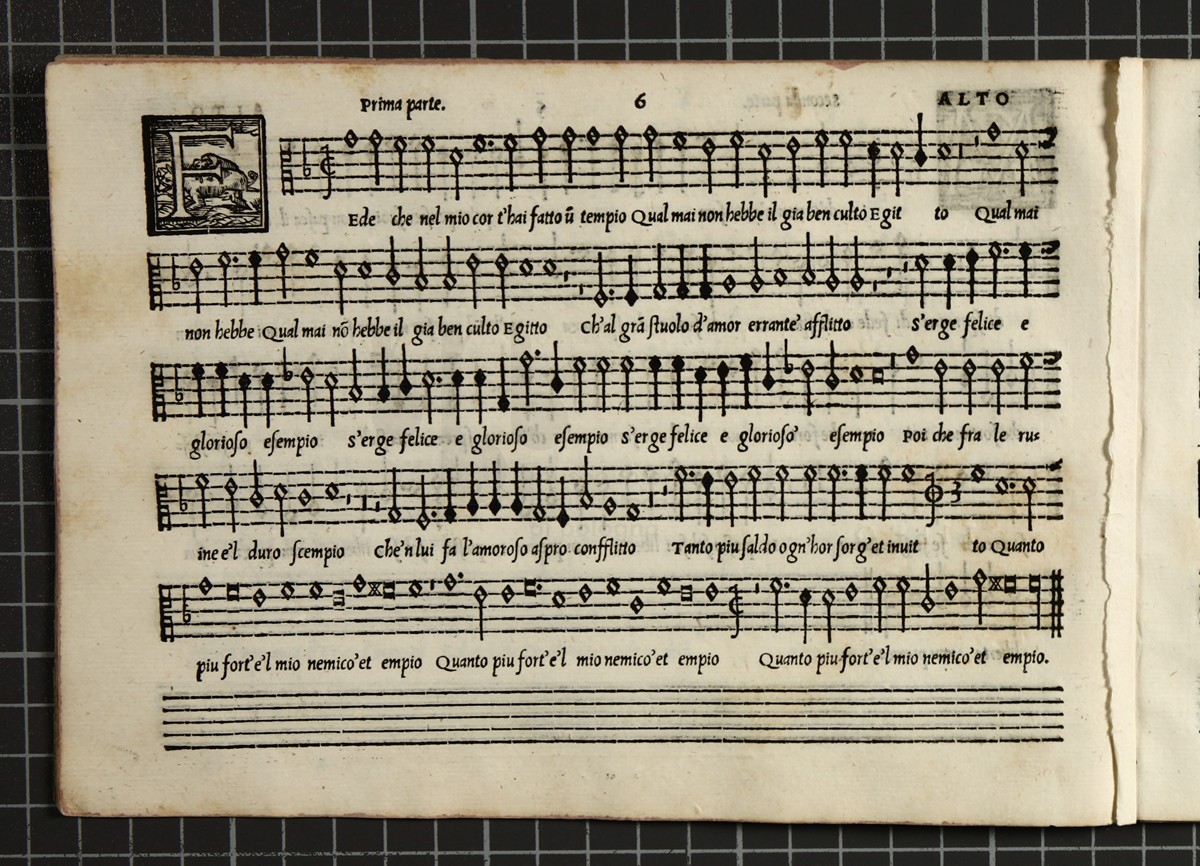 Prima parte. 6 ALTO
F
Ede che nel mio cor t'hai fatto ũ tempio Qual mai non hebbe il gia ben culto Egit to Qual mai
non hebbe Qual mai nõ hebbe il gia ben culto Egitto Ch'al grã ſtuolo d'amor errante' afflitto s'erge felice e
glorioſo eſempio s'erge felice e glorioſo eſempio s'erge felice e glorioſo' eſempio Poi che fra le ru=
ine e'l duro ſcempio Che'n lui fa l'amoroſo aſpro confflitto Tanto piu ſaldo ogn'hor ſorg'et inuit to Quanto
3
piu fort'e'l mio nemico'et empio Quanto piu fort'e'l mio nemico'et empio Quanto piu fort'e'l mio nemico'et empio.